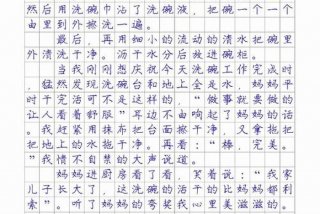 然后用洗碗巾沾了洗碗液，把碗一个一个
由里到外擦洗一遍。
最后，再用细小的流动的清水把碗里
外清洗干净。沥干水分后放进碗柜。
当我刚刚想庆祝今天洗碗工作完成时
，猛然发现洗碗台和地上全是水，妈妈平
时干完活可不是这样的，“做事就要做的
让人看着舒服”耳边不由响起了妈妈的话
。我赶紧用抹布把台面擦干净，又拿拖把
把地上的水拖干净。再看：“棒，完美。
”我情不自禁的大声说道。
妈妈进厨房看了看，笑着说：“我家
儿子长大了，这洗碗的活干的比妈妈都利
索”。听了妈妈的夸奖我心里美滋滋的。